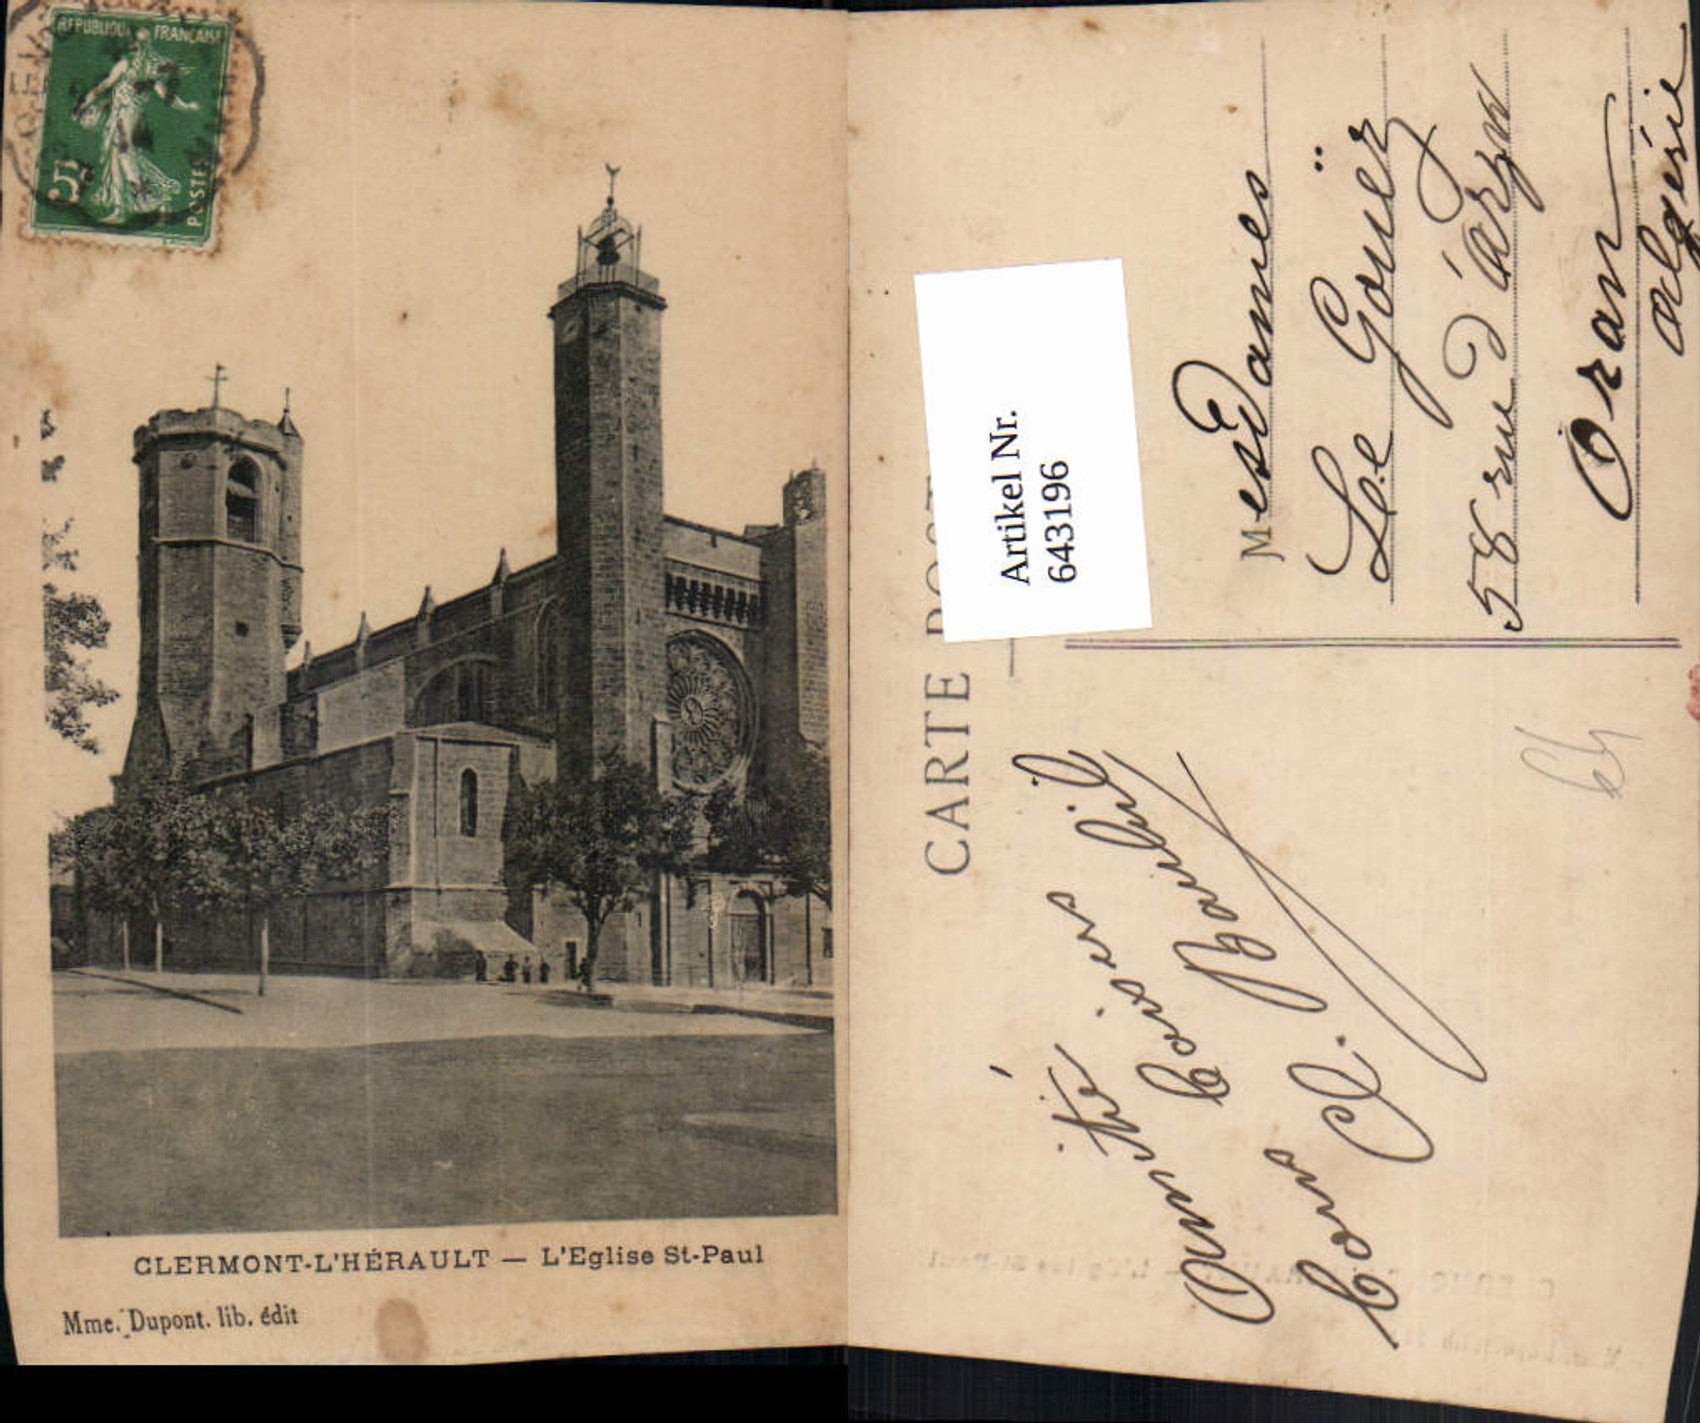 REPUBLIQUE FRANÇAISE
5c
POSTES
14
CLERMONT-L'HÉRAULT — L'Eglise St-Paul
Mme. Dupont. lib. édit
CARTE POSTALE
Artikel Nr.
643196
MesDames
Le Goüez
58 rue d'Arzew
Oran
Algérie
Amitiés